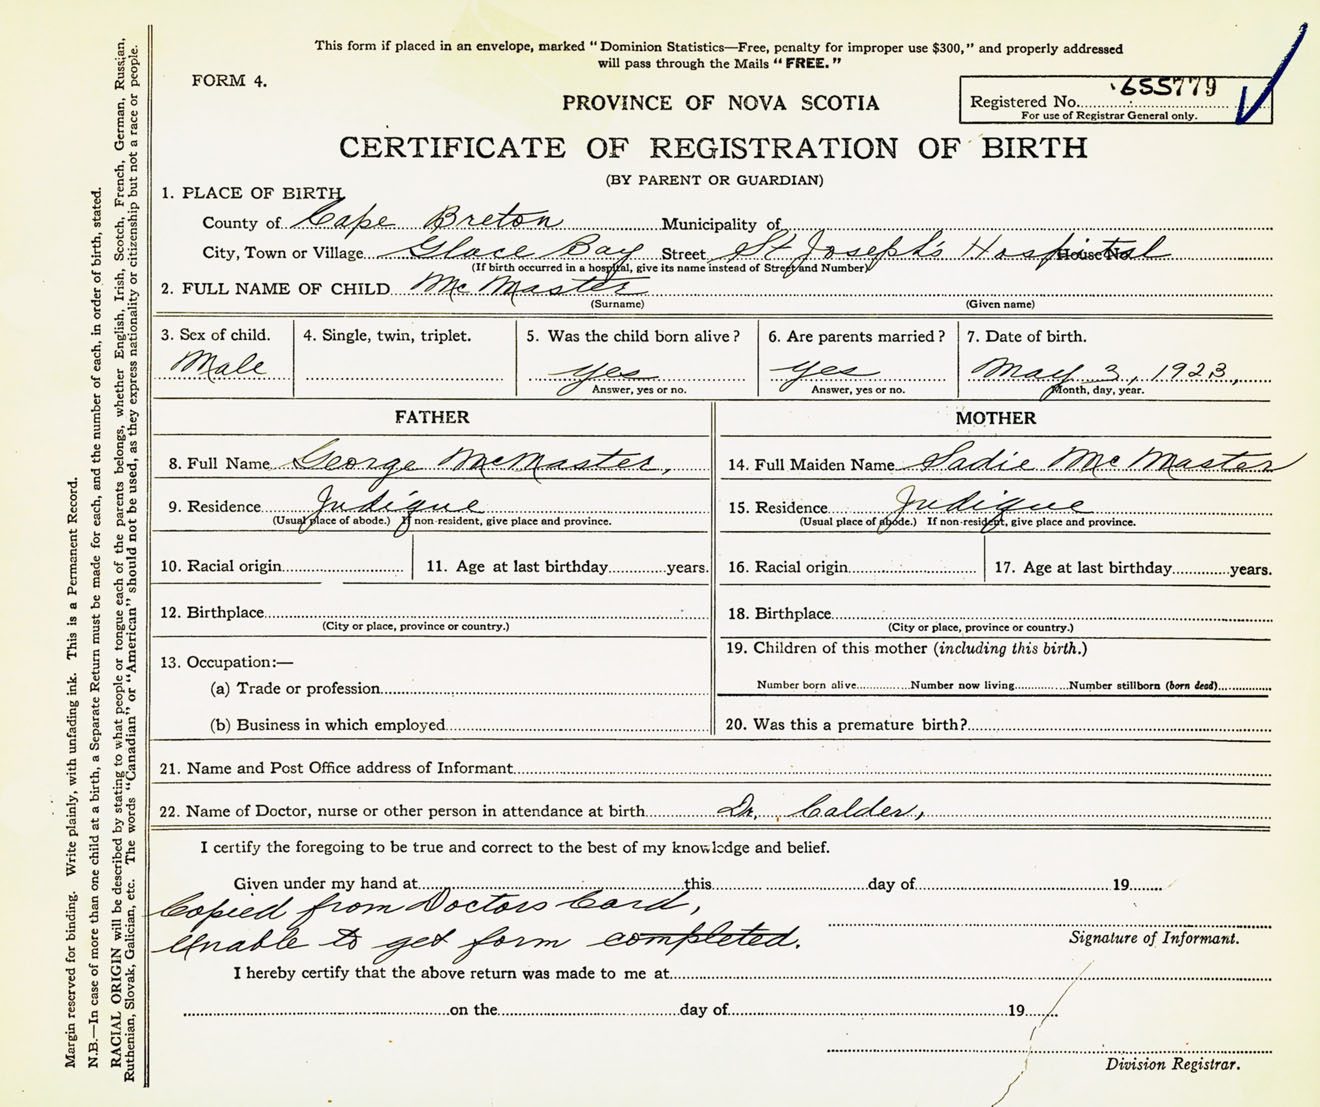 This form if placed in an envelope, marked “Dominion Statistics—Free, penalty for improper use $300,” and properly addressed
will pass through the Mails “FREE.”
FORM 4.
655779
Registered No.
For use of Registrar General only.
PROVINCE OF NOVA SCOTIA
CERTIFICATE OF REGISTRATION OF BIRTH
(BY PARENT OR GUARDIAN)
1. PLACE OF BIRTH
County of Cape Breton Municipality of
City, Town or Village Glace Bay Street St Joseph's Hospital House No.
(If birth occurred in a hospital, give its name instead of Street and Number)
2. FULL NAME OF CHILD Mc Master
(Surname) (Given name)
3. Sex of child. 4. Single, twin, triplet. 5. Was the child born alive? 6. Are parents married? 7. Date of birth.
Male yes yes May 3, 1923,
Answer, yes or no. Answer, yes or no. Month, day, year.
FATHER MOTHER
8. Full Name George McMaster, 14. Full Maiden Name Sadie Mc Master
9. Residence Judique 15. Residence Judique
(Usual place of abode.) If non-resident, give place and province. (Usual place of abode.) If non-resident, give place and province.
10. Racial origin 11. Age at last birthday years. 16. Racial origin 17. Age at last birthday years.
12. Birthplace 18. Birthplace
(City or place, province or country.) (City or place, province or country.)
19. Children of this mother (including this birth.)
13. Occupation:—
(a) Trade or profession Number born alive Number now living Number stillborn (born dead)
(b) Business in which employed 20. Was this a premature birth?
21. Name and Post Office address of Informant
22. Name of Doctor, nurse or other person in attendance at birth Dr. Calder,
I certify the foregoing to be true and correct to the best of my knowledge and belief.
Given under my hand at this day of 19
Copied from Doctors Card,
Unable to get form completed.
Signature of Informant.
I hereby certify that the above return was made to me at
on the day of 19
Division Registrar.
Margin reserved for binding. Write plainly, with unfading ink. This is a Permanent Record.
N.B.—In case of more than one child at a birth, a Separate Return must be made for each, and the number of each, in order of birth, stated.
RACIAL ORIGIN will be described by stating to what people or tongue each of the parents belongs, whether English, Irish, Scotch, French, German, Russian,
Ruthenian, Slovak, Galician, etc. The words “Canadian” or “American” should not be used, as they express nationality or citizenship but not a race or people.